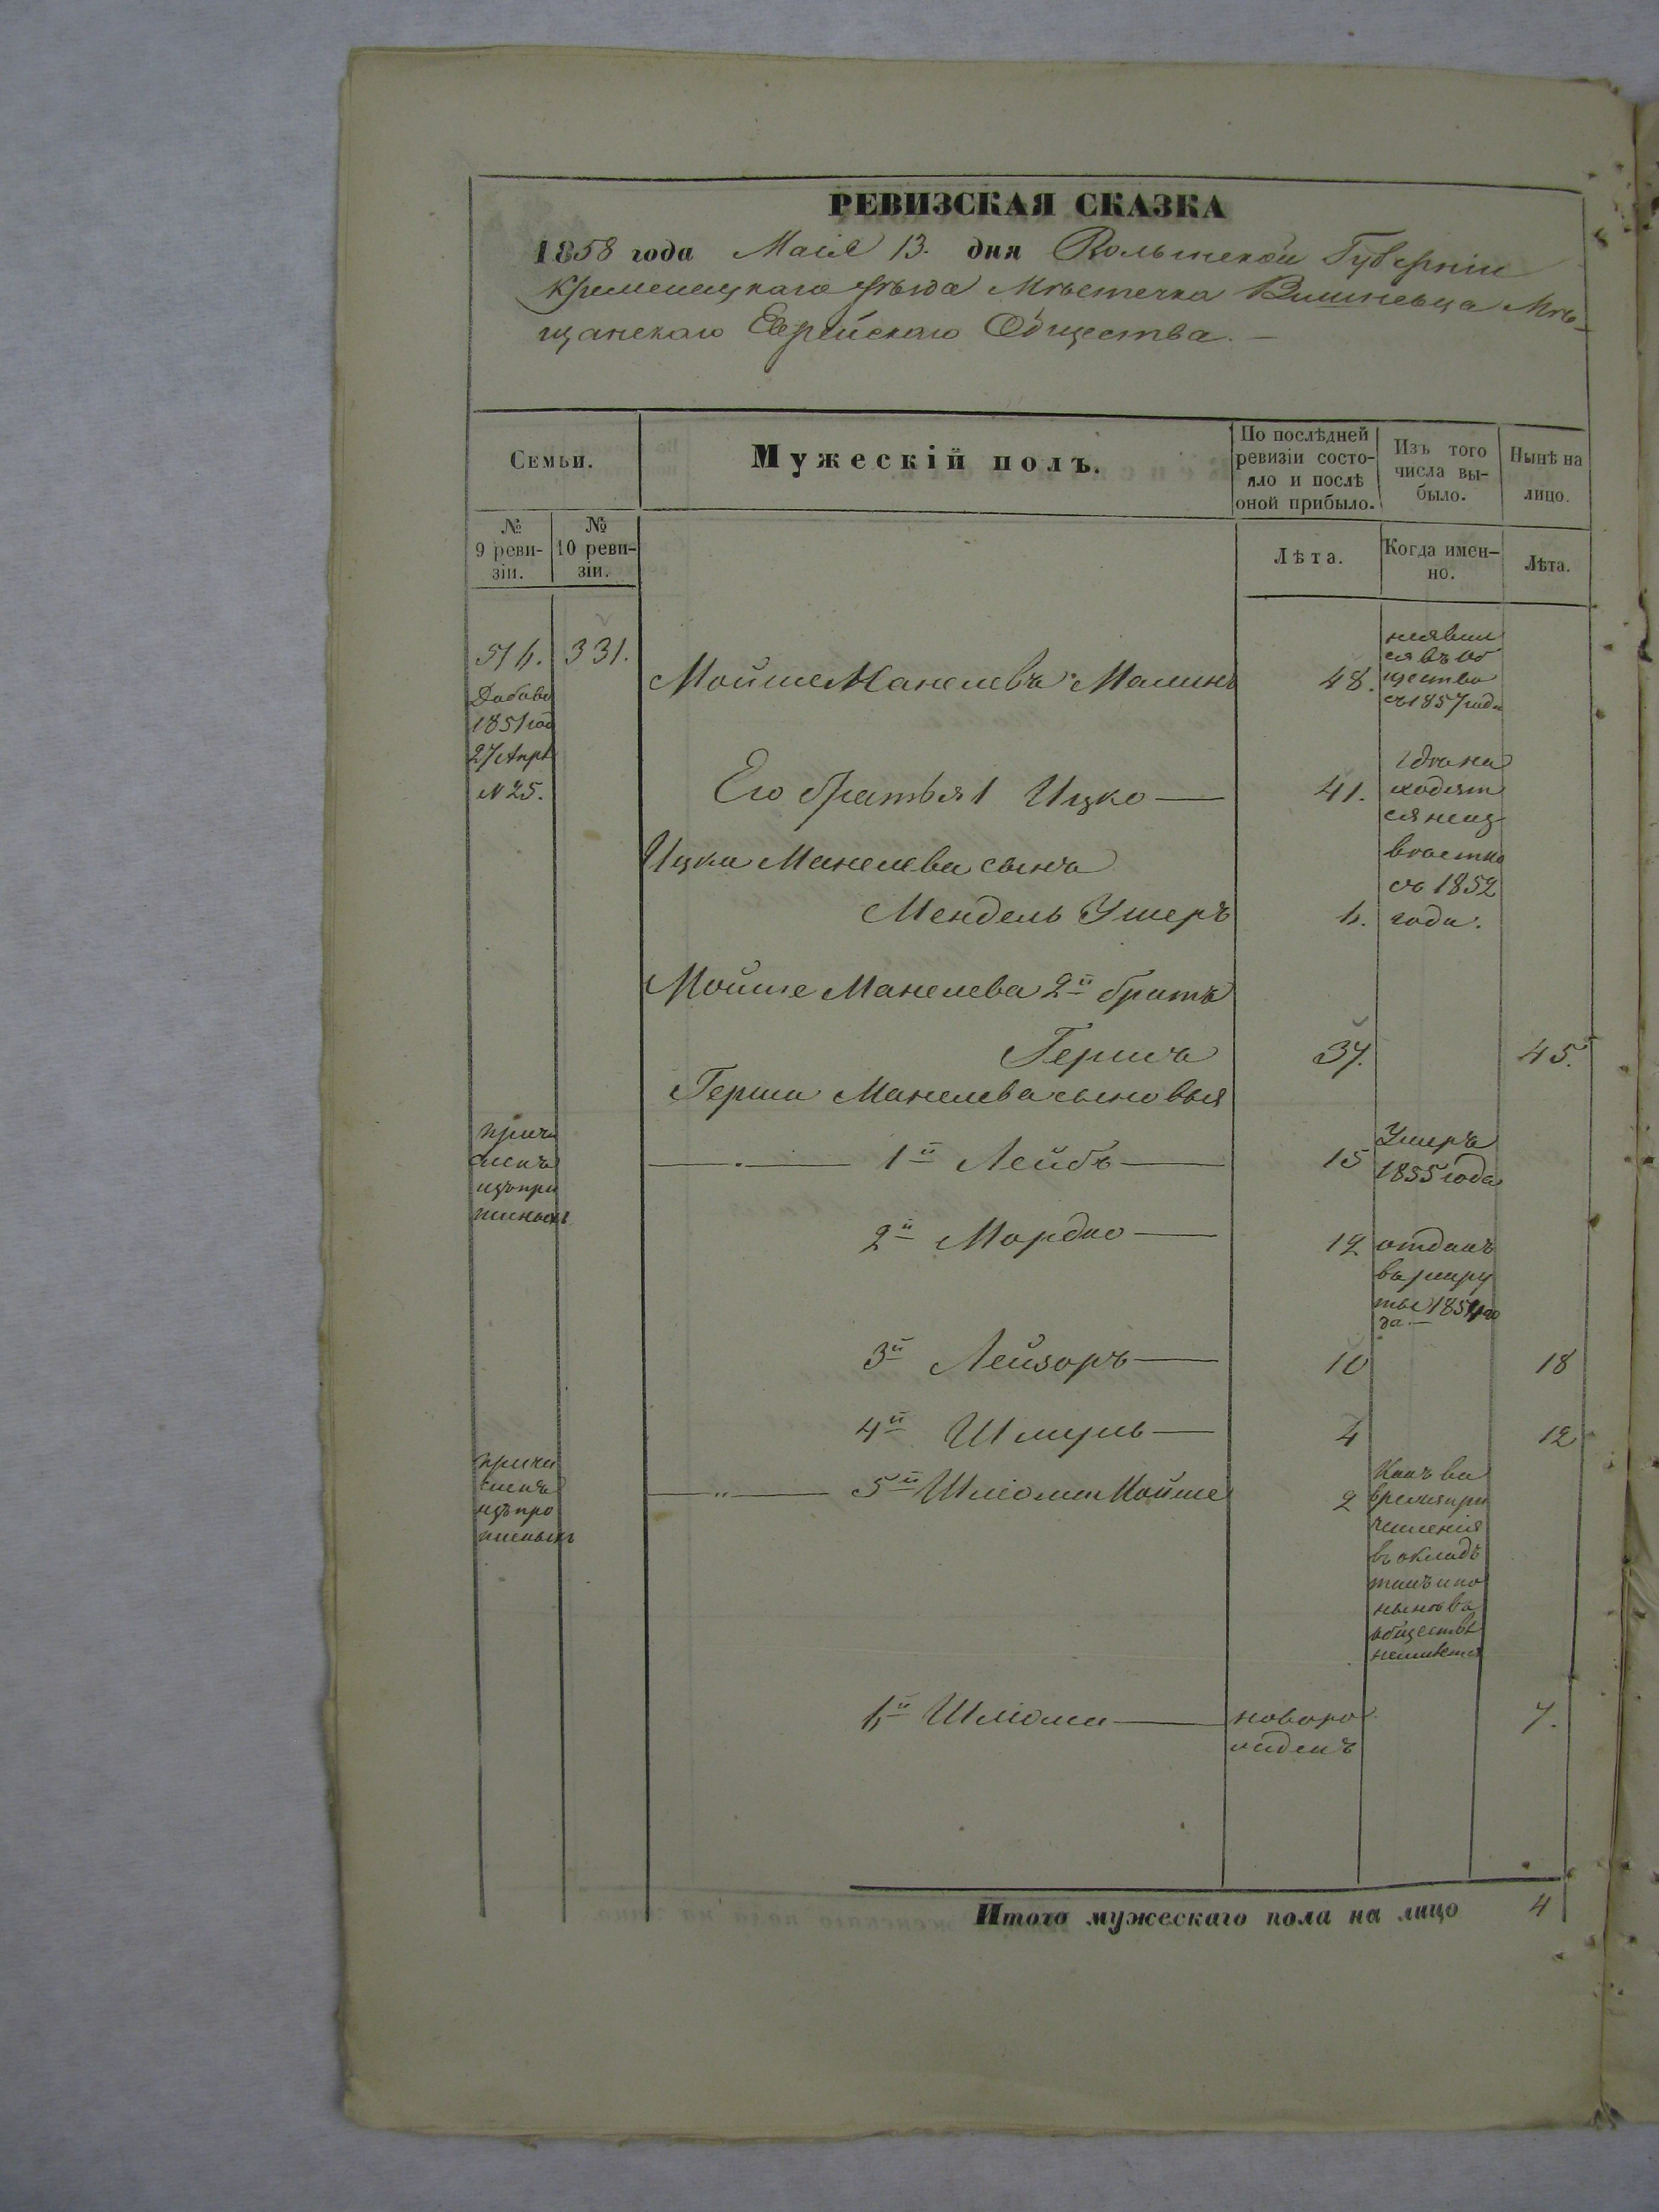 РЕВИЗСКАЯ СКАЗКА
1858 года Маія 13. дня Волынской Губерніи
Кременецкаго уѣзда Мѣстечка Вишневца Мѣ-
щанскаго Еврейскаго Общества. —
Семьи.
Мужескій полъ.
По послѣдней ревизіи состо-
яло и послѣ оной прибыло.
Изъ того числа вы-
было.
Нынѣ на лицо.
№ 9 реви-
зіи.
№ 10 реви-
зіи.
Лѣта.
Когда имен-
но.
Лѣта.
516. 331. Мойше Манелевъ 48.
неявил
ся въ об
щество
съ 1857 года
1851 год
27 Апрѣ
№ 25.
Его братья 1 Ицко — 41.
гдѣ на
ходит
ся неиз
вѣстно
съ 1852
года.
Ицка Манелева сынъ
Мендель Ушеръ 6.
Мойше Манелева 2й братъ
Гершъ 37. 45.
Герша Манелева сыновья
причи
сленъ
изъ про
писныхъ
1й Лейбъ — 15
Умеръ
1855 года
2й Мордко — 12
отданъ
въ рекру
ты 1854 го
да. —
3й Лейзоръ — 10 18
4й Шмуль — 4 12
причи
сленъ
изъ про
писныхъ
5й Шліома Мойше 2
Какъ во
время при
численія
въ окладъ
такъ и по
нынѣ въ
обществѣ
неимѣется
6й Шліома — новоро
жденъ 7.
Итого мужескаго пола на лицо 4